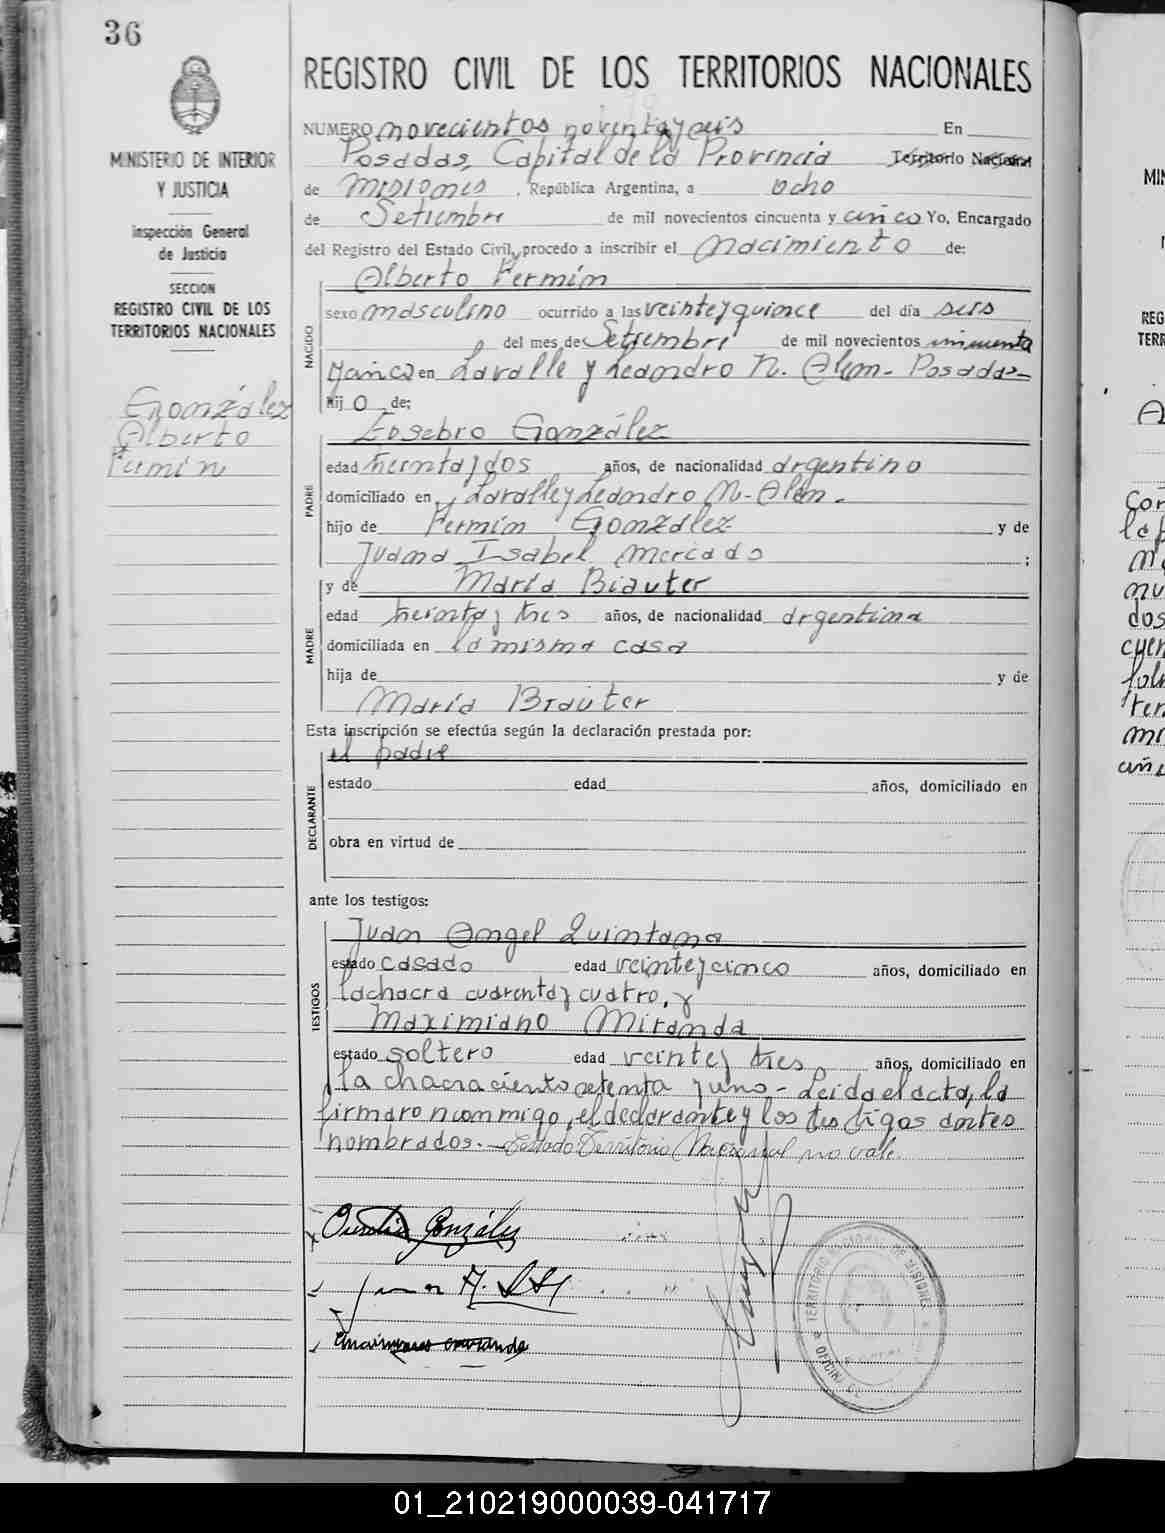 36
MINISTERIO DE INTERIOR
Y JUSTICIA
Inspección General
de Justicia
SECCION
REGISTRO CIVIL DE LOS
TERRITORIOS NACIONALES
González
Alberto
Fermín
REGISTRO CIVIL DE LOS TERRITORIOS NACIONALES
NUMERO novecientos noventa y seis En
Posadas, Capital de la Provincia Territorio Nacional
de Misiones, República Argentina, a ocho
de Setiembre de mil novecientos cincuenta y cinco Yo, Encargado
del Registro del Estado Civil, procedo a inscribir el Nacimiento de:
Alberto Fermín
NACIDO
sexo masculino ocurrido a las veinte y quince del día seis
del mes de Setiembre de mil novecientos cincuenta
y cinco en Lavalle y Leandro N. Alem - Posadas-
hij o de:
PADRE
Eusebio González
edad treinta y dos años, de nacionalidad argentino
domiciliado en Lavalle y Leandro N. Alem.
hijo de Fermín González y de
Juana Isabel Mercado ;
MADRE
y de María Brauter
edad treinta y tres años, de nacionalidad argentina
domiciliada en la misma casa
hija de y de
María Brauter
Esta inscripción se efectúa según la declaración prestada por:
el padre
DECLARANTE
estado edad años, domiciliado en
obra en virtud de
ante los testigos:
TESTIGOS
Juan Angel Quintana
estado casado edad veinte y cinco años, domiciliado en
la chacra cuarenta y cuatro, y
Maximiano Miranda
estado soltero edad veinte y tres años, domiciliado en
la chacra ciento setenta y uno - Leida el acta, la
firmaron conmigo, el declarante y los testigos antes
nombrados.- Testado Territorio Nacional no vale.
González
TERRITORIO NACIONAL DE MISIONES
01_210219000039-041717